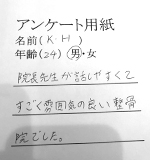 アンケート用紙
名前(K H)
年齢(24) 男・女
院長先生が話しやすくて
すごく雰囲気の良い整骨
院でした。